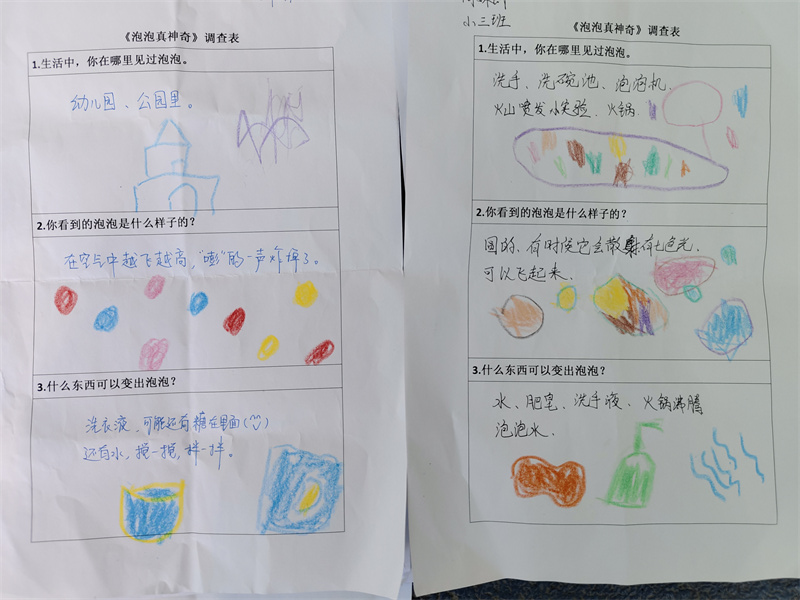 《泡泡真神奇》调查表
1.生活中，你在哪里见过泡泡。
幼儿园、公园里。
2.你看到的泡泡是什么样子的？
在空气中越飞越高，“嘭”的一声炸掉了。
3.什么东西可以变出泡泡？
洗衣液，可能还有糖在里面
还有水，搅一搅，拌一拌。
小三班
《泡泡真神奇》调查表
1.生活中，你在哪里见过泡泡。
洗手、洗碗池、泡泡机、
火山喷发小实验、火锅
2.你看到的泡泡是什么样子的？
圆的、有时候它会散射有七色光、
可以飞起来、
3.什么东西可以变出泡泡？
水、肥皂、洗手液、火锅沸腾
泡泡水、